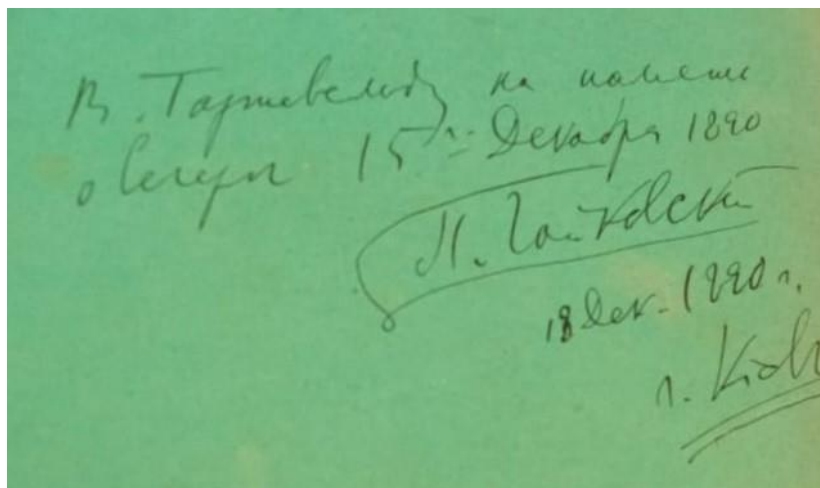 В. Гартевельду на память
о вечере 15го Декабря 1890
П. Чайковский
18 Дек. 1890 г.
г. Кіевъ